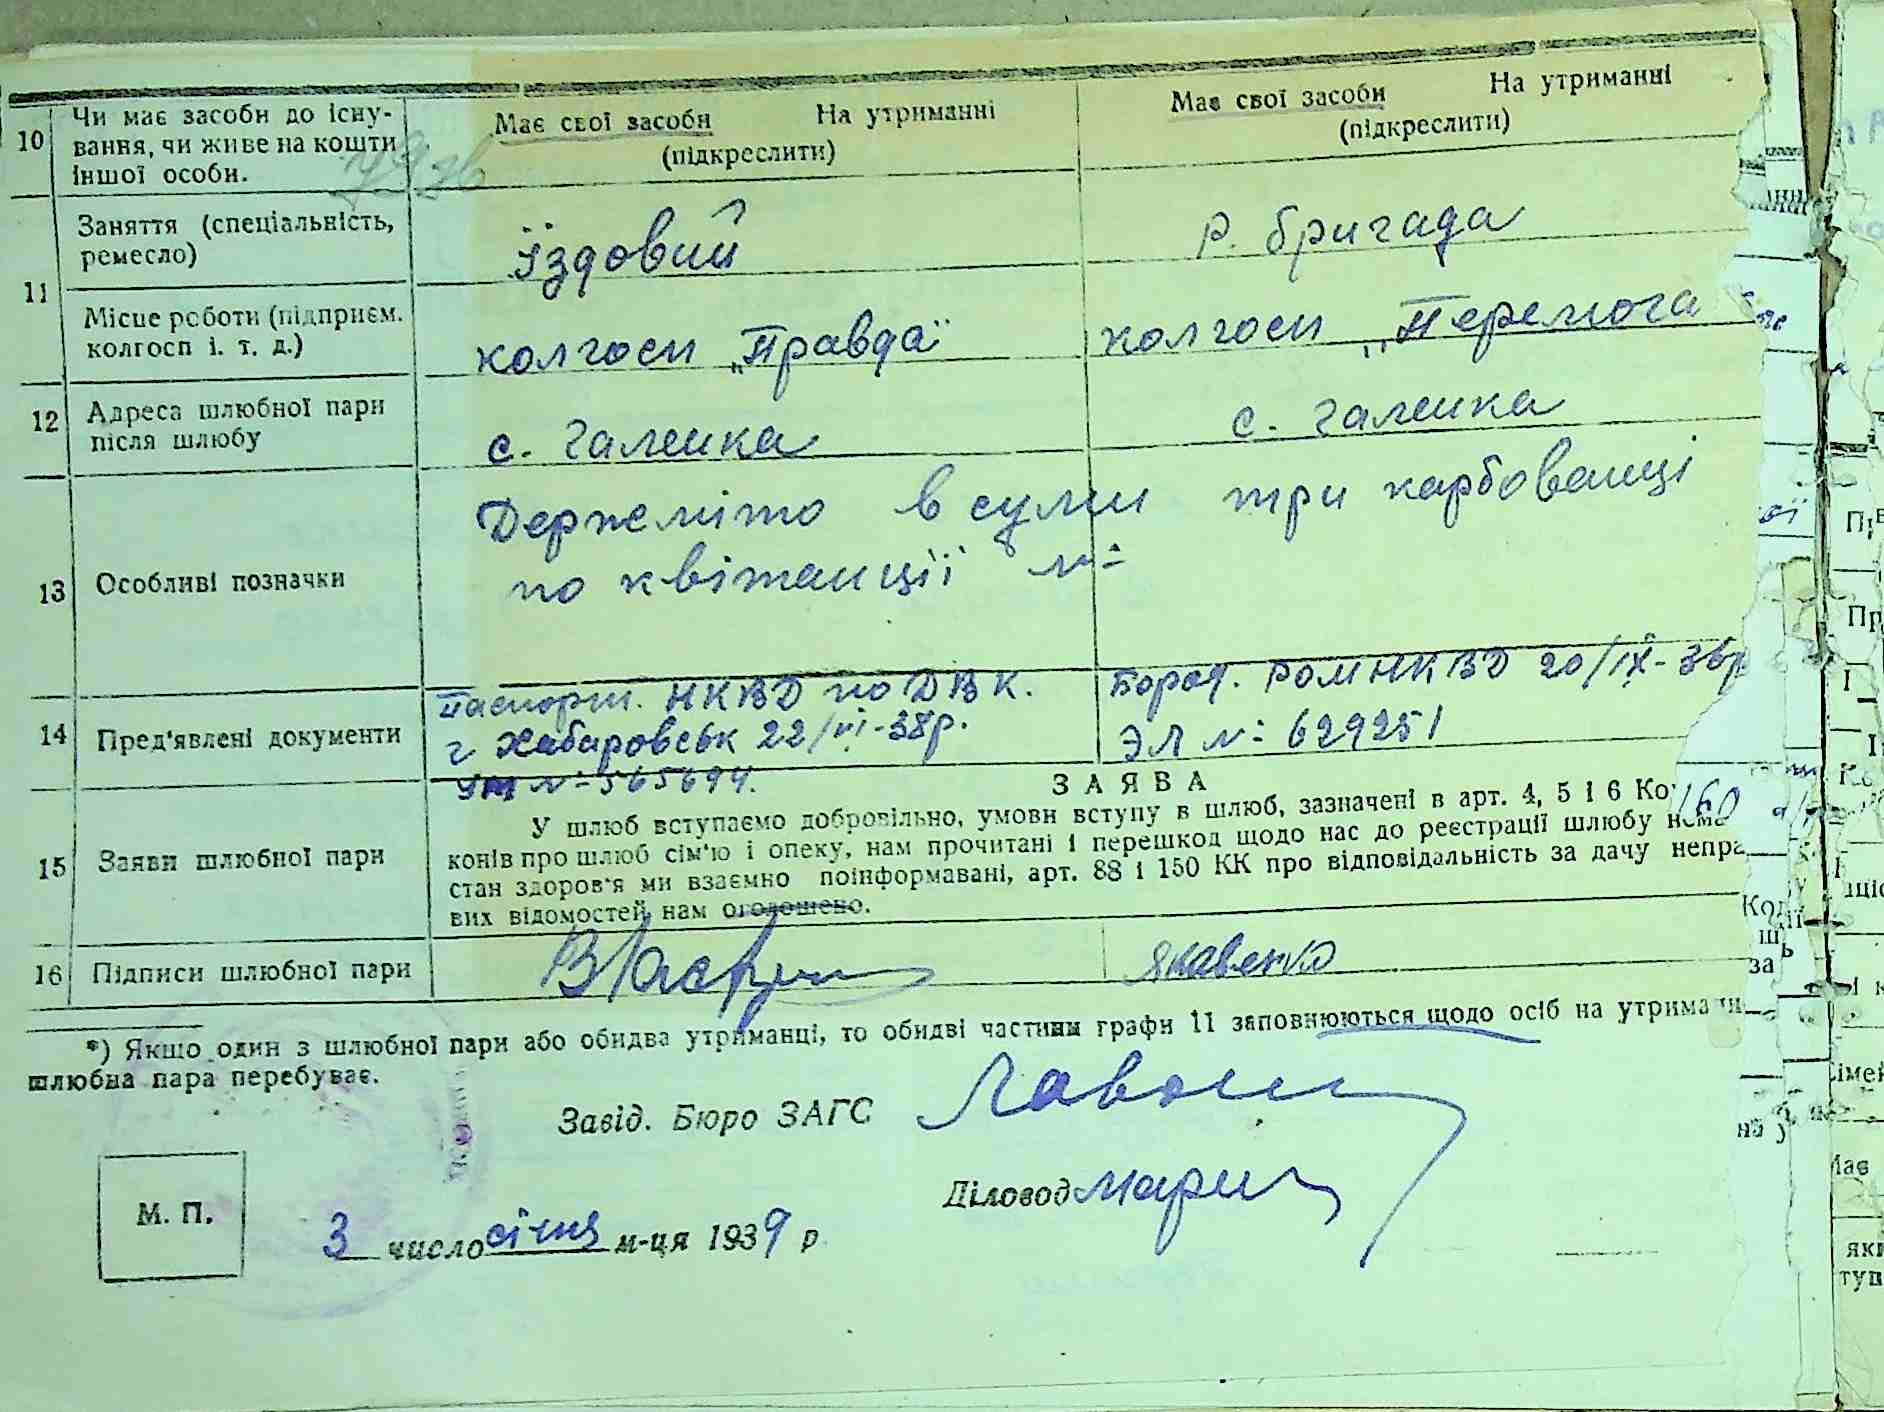 10 Чи має засоби до існу-
вання, чи живе на кошти
іншої особи.
Має свої засоби На утриманні
(підкреслити)
Має свої засоби На утриманні
(підкреслити)
11 Заняття (спеціальність,
ремесло)
їздовий
Р. бригада
Місце роботи (підприєм.
колгосп і. т. д.)
колгосп „Правда"
колгосп „Перемога
12 Адреса шлюбної пари
після шлюбу
с. Галенка
с. Галенка
13 Особливі позначки
Держмито в суми три карбованці
по квітанції №
14 Пред'явлені документи
Паспорт. НКВД по ДВК.
г Хабаровськ 22/VI-38р.
№ 565694.
Бород. РОМ НКВД 20/IX-36р
ЭЛ № 629251
15 Заяви шлюбної пари
ЗАЯВА
У шлюб вступаємо добровільно, умови вступу в шлюб, зазначені в арт. 4, 5 і 6 Ко
конів про шлюб сім'ю і опеку, нам прочитані і перешкод щодо нас до реєстрації шлюбу нема
стан здоров'я ми взаємно поінформавані, арт. 88 і 150 КК про відповідальність за дачу непра
вих відомостей нам оголошено.
160
16 Підписи шлюбної пари
Якавенко
*) Якщо один з шлюбної пари або обидва утриманці, то обидві частини графи 11 заповнюються щодо осіб на утриманні
шлюбна пара перебуває.
Завід. Бюро ЗАГС
Діловод
М. П.
3 число січня м-ця 1939 р